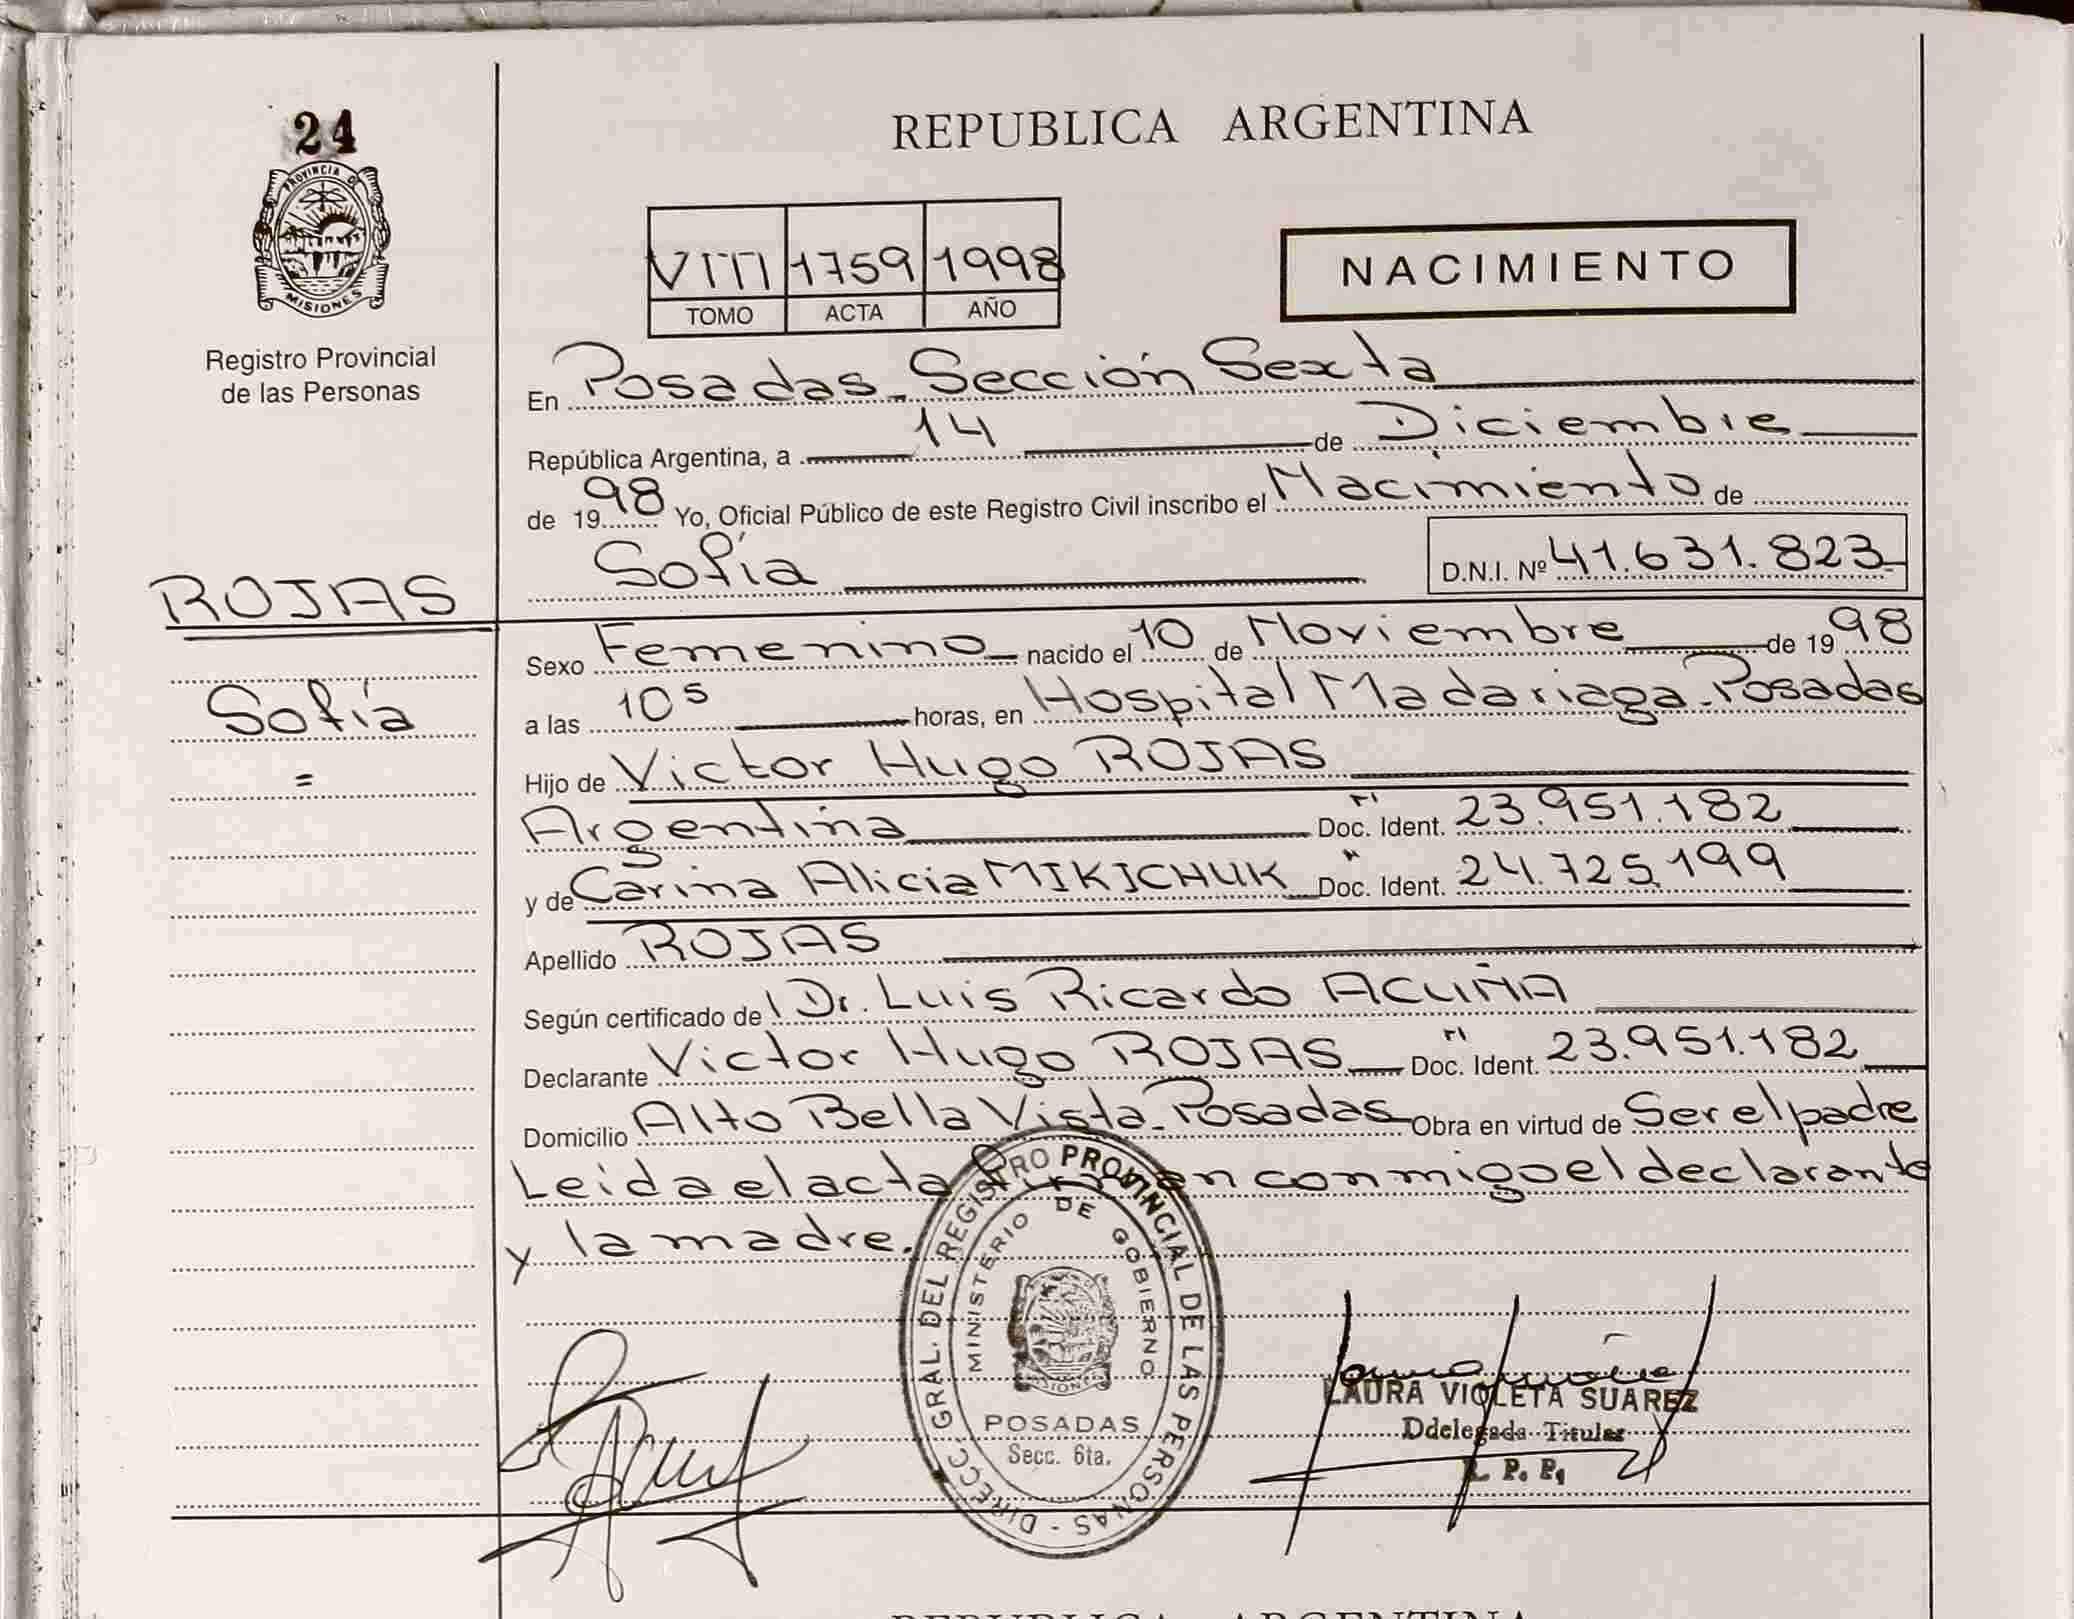 24
PROVINCIA D
MISIONES
Registro Provincial
de las Personas
ROJAS
Sofía
=
REPUBLICA ARGENTINA
VIII 1759 1998
TOMO ACTA AÑO
NACIMIENTO
En Posadas - Sección Sexta
República Argentina, a 14 de Diciembre
de 1998 Yo, Oficial Público de este Registro Civil inscribo el Nacimiento de
Sofía D.N.I. Nº 41.631.823
Sexo Femenino nacido el 10 de Noviembre de 1998
a las 10⁵ horas, en Hospital Madariaga - Posadas
Hijo de Victor Hugo ROJAS
Argentina Doc. Ident. 23.951.182
y de Carina Alicia MIKICHUK Doc. Ident. 24.725.199
Apellido ROJAS
Según certificado de Dr. Luis Ricardo ACUÑA
Declarante Victor Hugo ROJAS Doc. Ident. 23.951.182
Domicilio Alto Bella Vista - Posadas Obra en virtud de Ser el padre
Leida el acta firman conmigo el declarante
y la madre.
DIRECC. GRAL. DEL REGISTRO PROVINCIAL DE LAS PERSONAS -
MINISTERIO DE GOBIERNO
MISIONES
POSADAS
Secc. 6ta.
LAURA VIOLETA SUAREZ
Ddelegada Titular
R. P. P.
REPUBLICA ARGENTINA